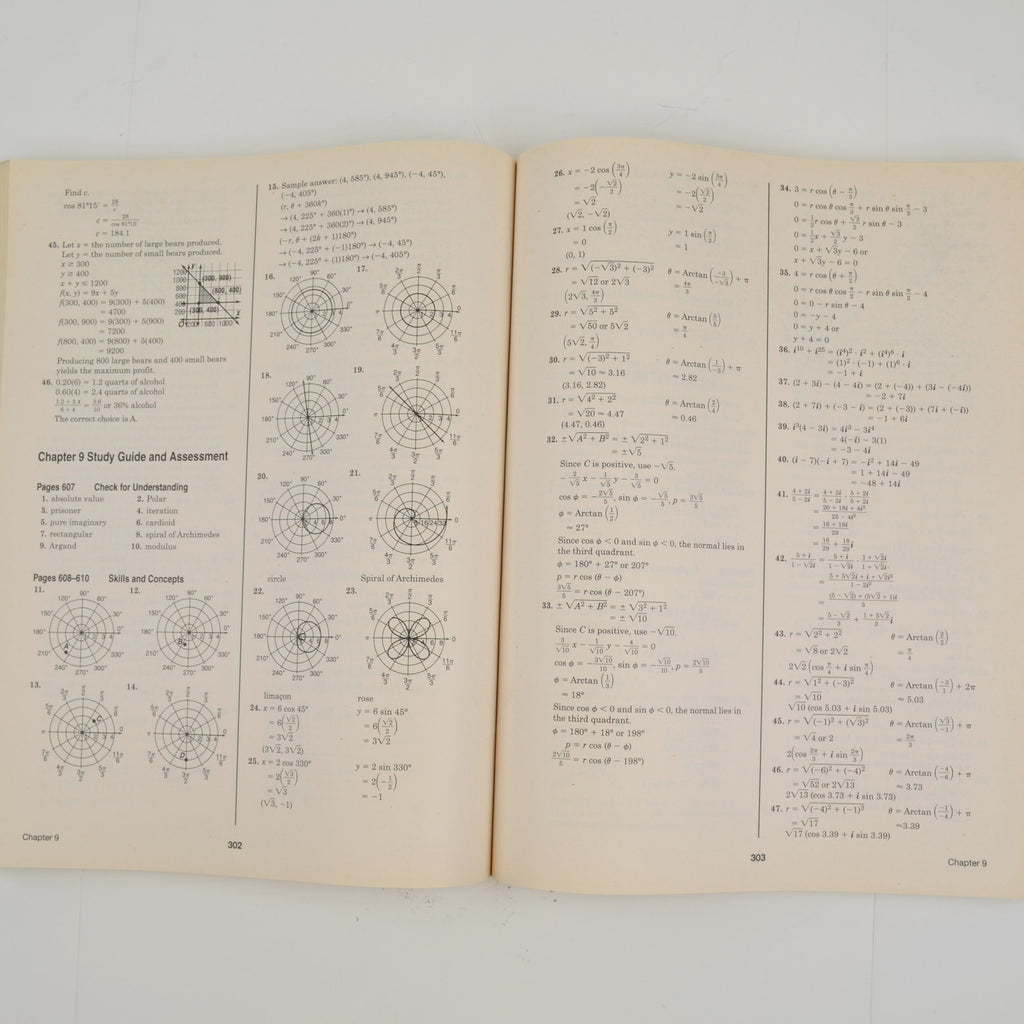 Find c.
cos 81°15′ = 28/c
c = 28/cos 81°15′
c = 184.1
45. Let x = the number of large bears produced.
Let y = the number of small bears produced.
x ≥ 300
y ≥ 400
x + y ≤ 1200
f(x, y) = 9x + 5y
f(300, 400) = 9(300) + 5(400)
= 4700
f(300, 900) = 9(300) + 5(900)
= 7200
f(800, 400) = 9(800) + 5(400)
= 9200
(300, 900)
(800, 400)
(300, 400)
Producing 800 large bears and 400 small bears
yields the maximum profit.
46. 0.20(6) = 1.2 quarts of alcohol
0.60(4) = 2.4 quarts of alcohol
1.2 + 2.4/6 + 4 = 3.6/10 or 36% alcohol
The correct choice is A.
Chapter 9 Study Guide and Assessment
Pages 607 Check for Understanding
1. absolute value 2. Polar
3. prisoner 4. iteration
5. pure imaginary 6. cardioid
7. rectangular 8. spiral of Archimedes
9. Argand 10. modulus
Pages 608–610 Skills and Concepts
11. 12.
13. 14.
Chapter 9
302
15. Sample answer: (4, 585°), (4, 945°), (−4, 45°),
(−4, 405°)
(r, θ + 360k°)
→ (4, 225° + 360(1)°) → (4, 585°)
→ (4, 225° + 360(2)°) → (4, 945°)
(−r, θ + (2k + 1)180°)
→ (−4, 225° + (−1)180°) → (−4, 45°)
→ (−4, 225° + (1)180°) → (−4, 405°)
16. 17.
18. 19.
20. 21.
circle Spiral of Archimedes
22. 23.
limaçon rose
24. x = 6 cos 45° y = 6 sin 45°
= 6(√2/2) = 6(√2/2)
= 3√2 = 3√2
(3√2, 3√2)
25. x = 2 cos 330° y = 2 sin 330°
= 2(√3/2) = 2(−1/2)
= √3 = −1
(√3, −1)
26. x = −2 cos (3π/4) y = −2 sin (3π/4)
= −2(−√2/2) = −2(√2/2)
= √2 = −√2
(√2, −√2)
27. x = 1 cos (π/2) y = 1 sin (π/2)
= 0 = 1
(0, 1)
28. r = √(−√3)² + (−3)² θ = Arctan (−3/−√3) + π
= √12 or 2√3 = 4π/3
(2√3, 4π/3)
29. r = √5² + 5² θ = Arctan (5/5)
= √50 or 5√2 = π/4
(5√2, π/4)
30. r = √(−3)² + 1² θ = Arctan (1/−3) + π
= √10 ≈ 3.16 ≈ 2.82
(3.16, 2.82)
31. r = √4² + 2² θ = Arctan (2/4)
= √20 ≈ 4.47 ≈ 0.46
(4.47, 0.46)
32. ±√A² + B² = ± √2² + 1²
= ±√5
Since C is positive, use −√5.
−2/√5 x − 1/√5 y − 3/√5 = 0
cos ϕ = −2√5/5, sin ϕ = −√5/5, p = 3√5/5
ϕ = Arctan (1/2)
≈ 27°
Since cos ϕ < 0 and sin ϕ < 0, the normal lies in
the third quadrant.
ϕ = 180° + 27° or 207°
p = r cos (θ − ϕ)
3√5/5 = r cos (θ − 207°)
33. ±√A² + B² = ± √3² + 1²
= ± √10
Since C is positive, use −√10.
3/√10 x − 1/√10 y − 4/√10 = 0
cos ϕ = −3√10/10, sin ϕ = −√10/10, p = 2√10/5
ϕ = Arctan (1/3)
≈ 18°
Since cos ϕ < 0 and sin ϕ < 0, the normal lies in
the third quadrant.
ϕ = 180° + 18° or 198°
p = r cos (θ − ϕ)
2√10/5 = r cos (θ − 198°)
34. 3 = r cos (θ − π/3)
0 = r cos θ cos π/3 + r sin θ sin π/3 − 3
0 = 1/2 r cos θ + √3/2 r sin θ − 3
0 = 1/2 x + √3/2 y − 3
0 = x + √3y − 6 or
x + √3y − 6 = 0
35. 4 = r cos (θ + π/2)
0 = r cos θ cos π/2 − r sin θ sin π/2 − 4
0 = 0 − r sin θ − 4
0 = −y − 4
0 = y + 4 or
y + 4 = 0
36. i¹⁰ + i²⁵ = (i⁴)² · i² + (i⁴)⁶ · i
= (1)² · (−1) + (1)⁶ · i
= −1 + i
37. (2 + 3i) − (4 − 4i) = (2 + (−4)) + (3i − (−4i))
= −2 + 7i
38. (2 + 7i) + (−3 − i) = (2 + (−3)) + (7i + (−i))
= −1 + 6i
39. i³(4 − 3i) = 4i³ − 3i⁴
= 4(−i) − 3(1)
= −3 − 4i
40. (i − 7)(−i + 7) = −i² + 14i − 49
= 1 + 14i − 49
= −48 + 14i
41. 4 + 2i/5 − 2i = 4 + 2i/5 − 2i · 5 + 2i/5 + 2i
= 20 + 18i + 4i²/25 − 4i²
= 16 + 18i/29
= 16/29 + 18/29 i
42. 5 + i/1 − √2i = 5 + i/1 − √2i · 1 + √2i/1 + √2i
= 5 + 5√2i + i + √2i²/1 − 2i²
= (5 − √2) + (5√2 + 1)i/3
= 5 − √2/3 + 1 + 5√2/3 i
43. r = √2² + 2² θ = Arctan (2/2)
= √8 or 2√2 = π/4
2√2 (cos π/4 + i sin π/4)
44. r = √1² + (−3)² θ = Arctan (−3/1) + 2π
= √10 ≈ 5.03
√10 (cos 5.03 + i sin 5.03)
45. r = √(−1)² + (√3)² θ = Arctan (√3/−1) + π
= √4 or 2 = 2π/3
2(cos 2π/3 + i sin 2π/3)
46. r = √(−6)² + (−4)² θ = Arctan (−4/−6) + π
= √52 or 2√13 ≈ 3.73
2√13 (cos 3.73 + i sin 3.73)
47. r = √(−4)² + (−1)² θ = Arctan (−1/−4) + π
= √17 ≈3.39
√17 (cos 3.39 + i sin 3.39)
303
Chapter 9